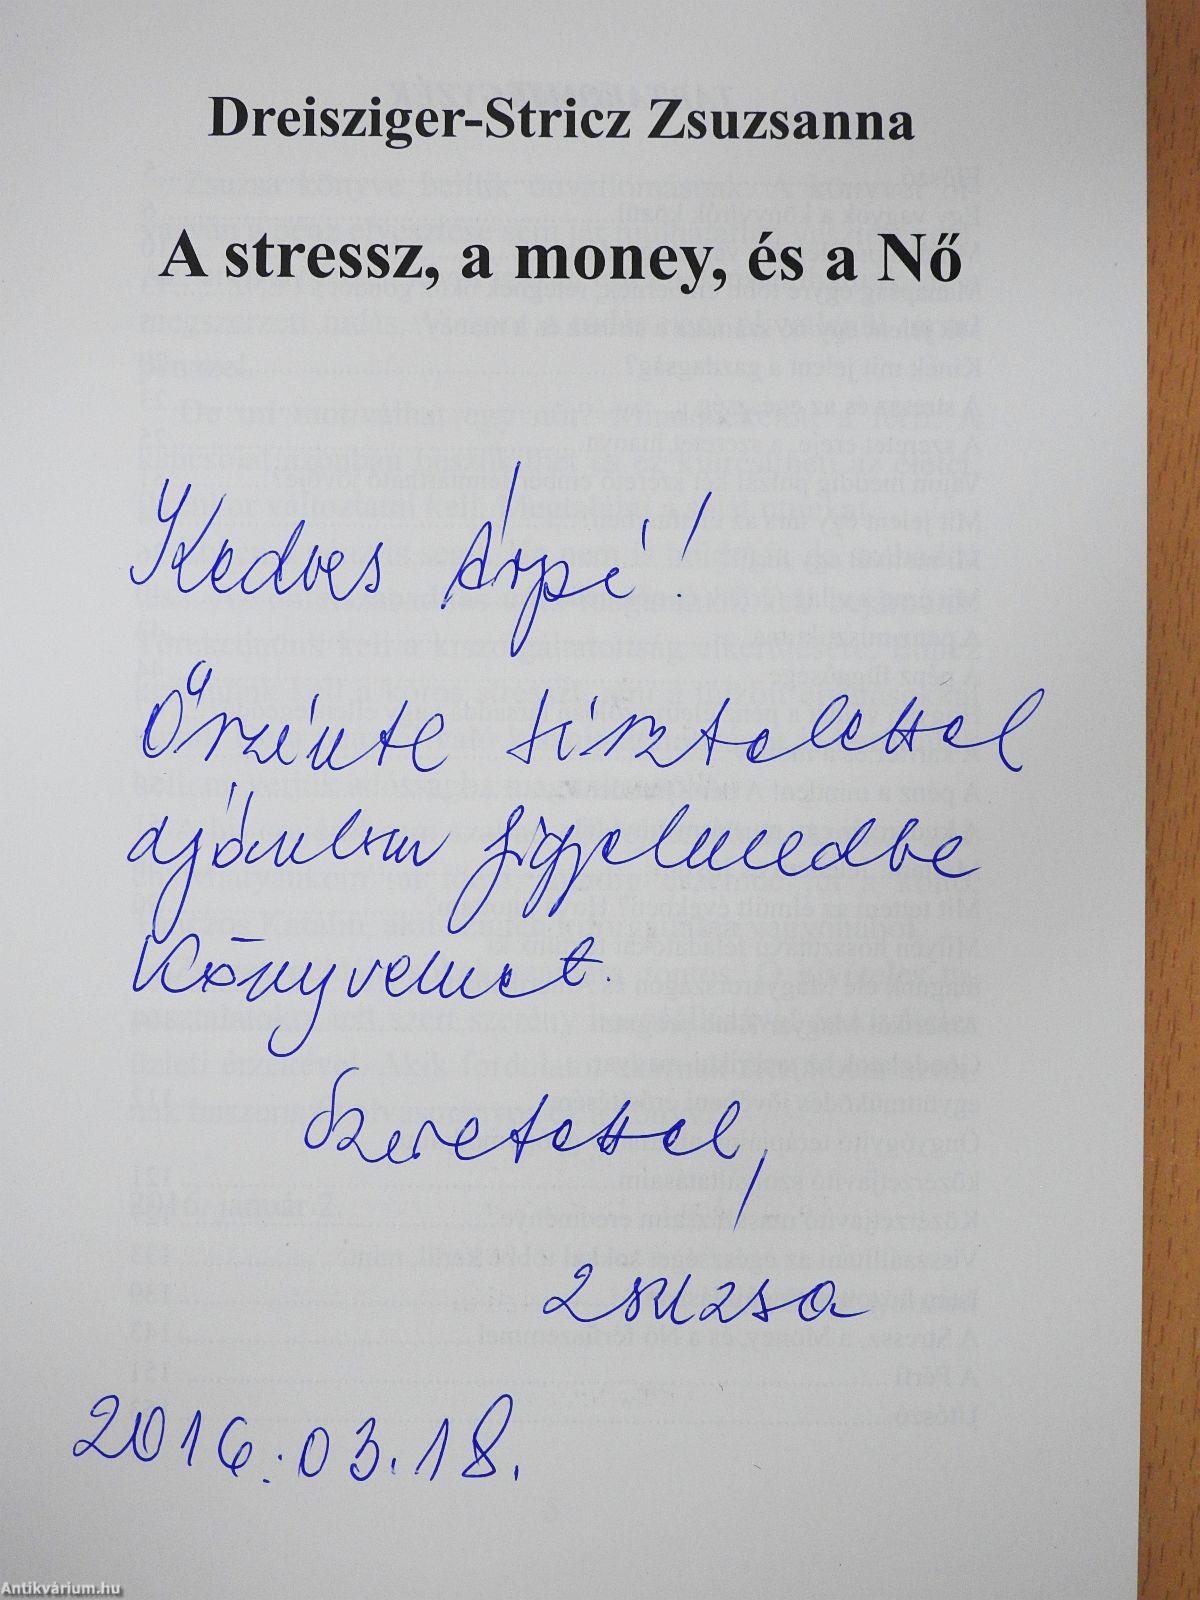 Dreisziger-Stricz Zsuzsanna
A stressz, a money, és a Nő
Kedves Árpi!
Őszinte tisztelettel
ajánlom figyelmedbe
Könyvemet.
Szeretettel,
Zsuzsa
2016.03.18.
Antikvárium.hu